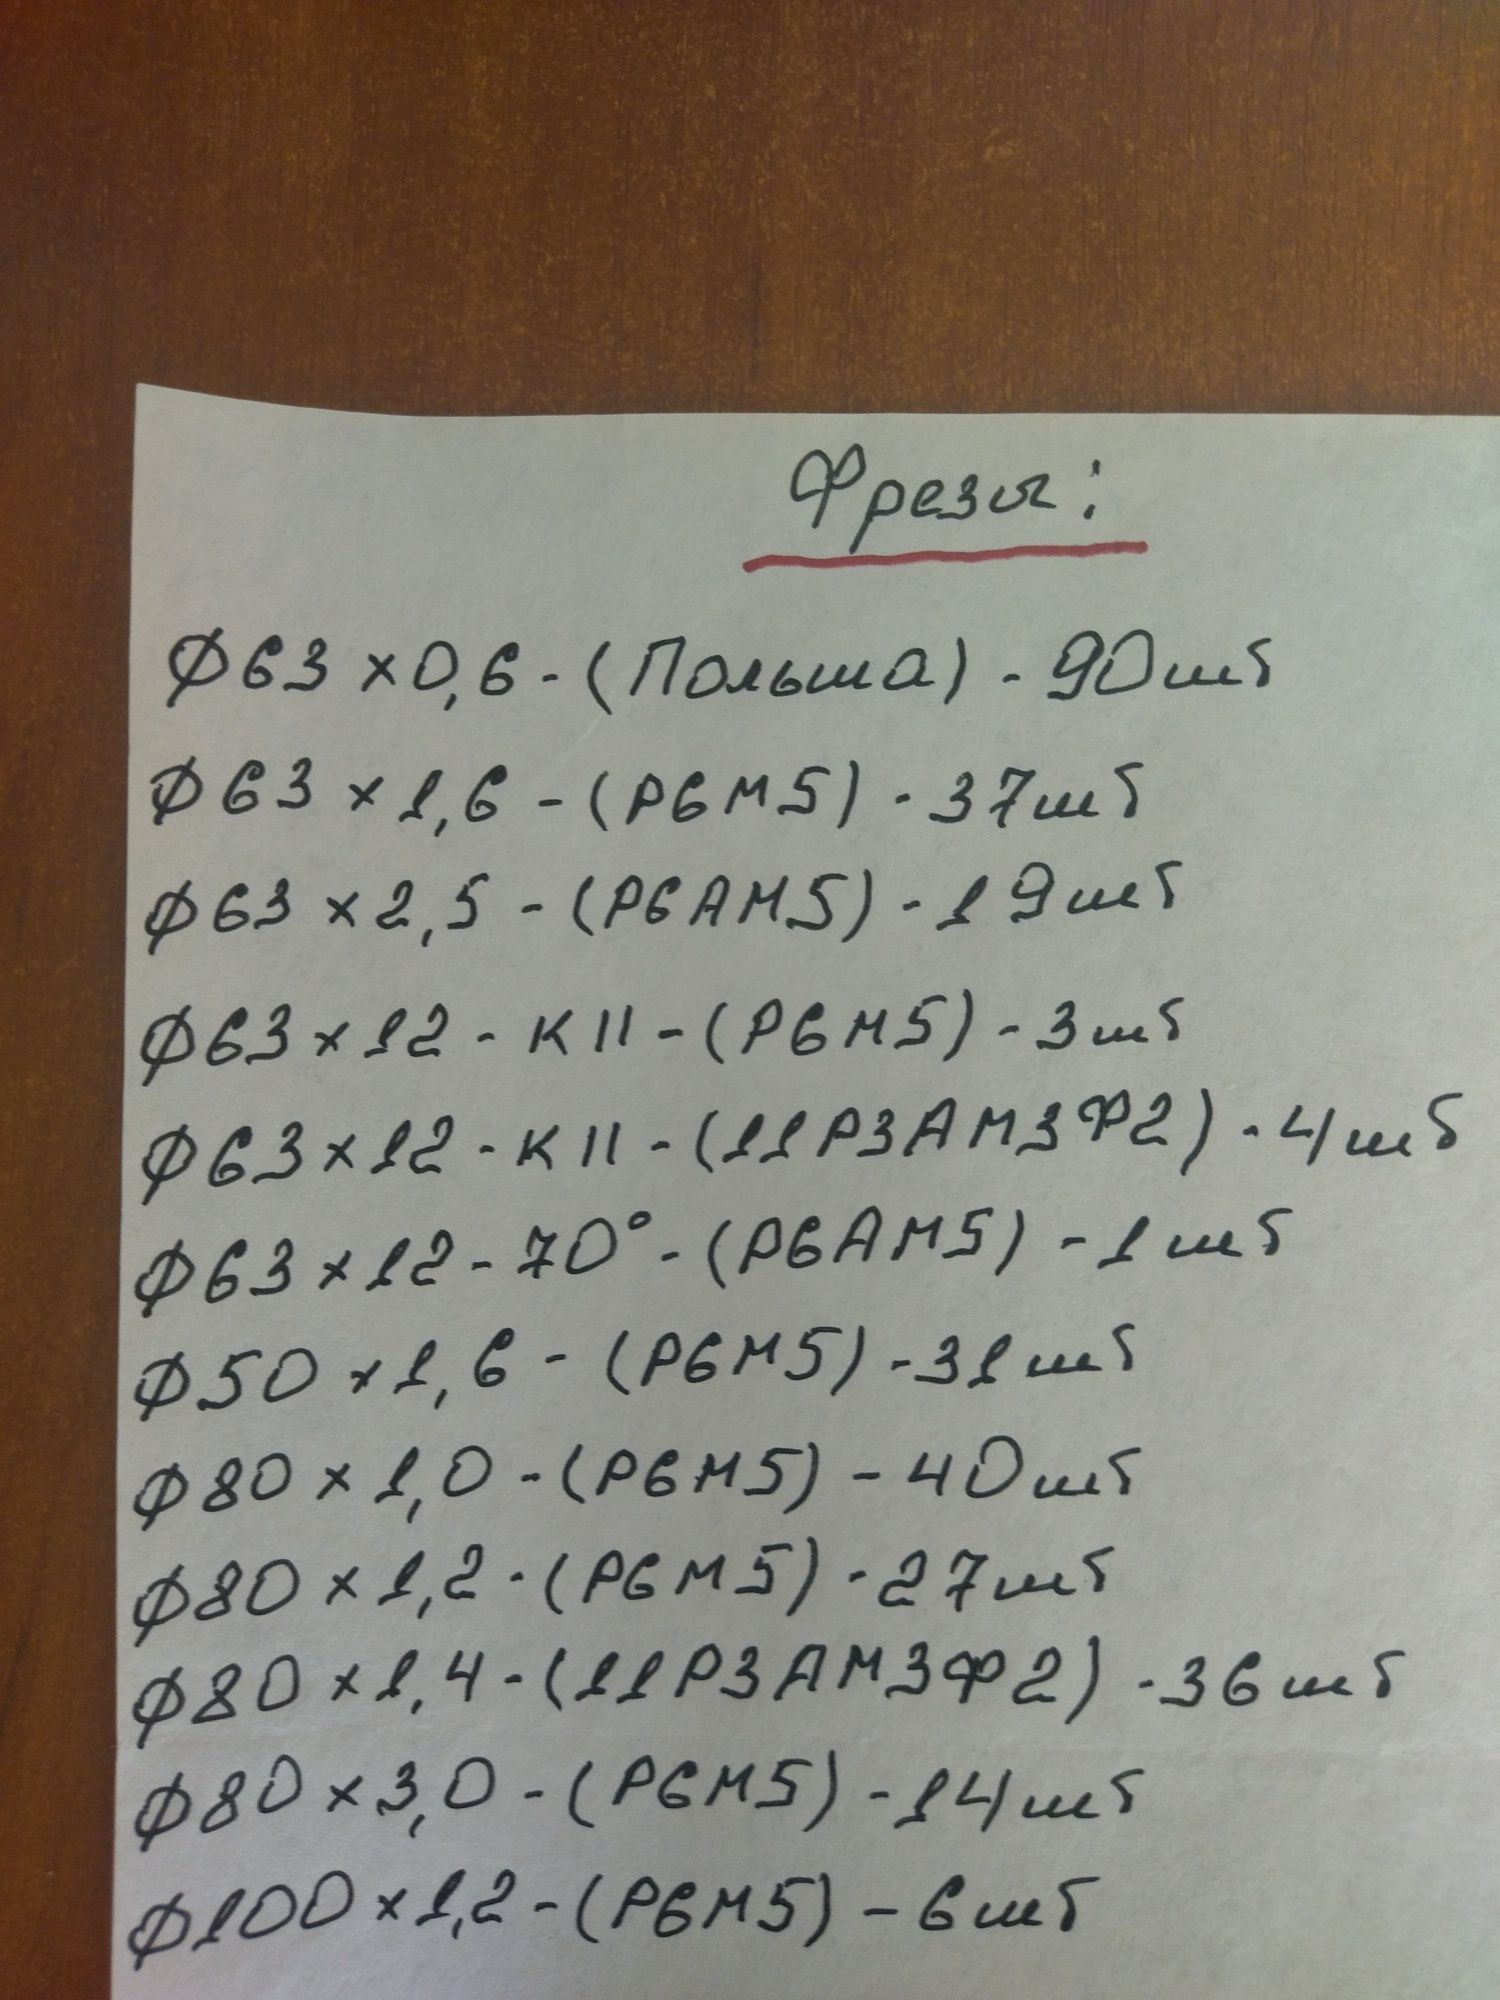 Фрезы:
Ф63×0,6-(Польша)-90шт
Ф63×1,6-(Р6М5)-37шт
Ф63×2,5-(Р6АМ5)-19шт
Ф63×12-К11-(Р6М5)-3шт
Ф63×12-К11-(11Р3АМ3Ф2)-4шт
Ф63×12-70°-(Р6АМ5)-1шт
Ф50×1,6-(Р6М5)-31шт
Ф80×1,0-(Р6М5)-40шт
Ф80×1,2-(Р6М5)-27шт
Ф80×1,4-(11Р3АМ3Ф2)-36шт
Ф80×3,0-(Р6М5)-14шт
Ф100×1,2-(Р6М5)-6шт